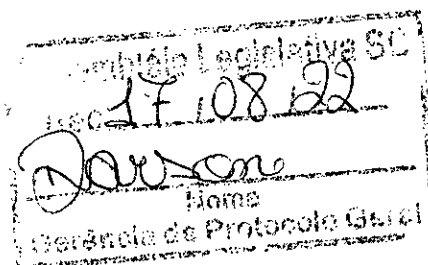 Assembléia Legislativa SC
Rec. 17 / 08 / 22
Darson
Nome
Gerência de Protocolo Geral